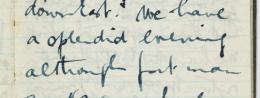 down East. We have
a splendid evening
although fort man